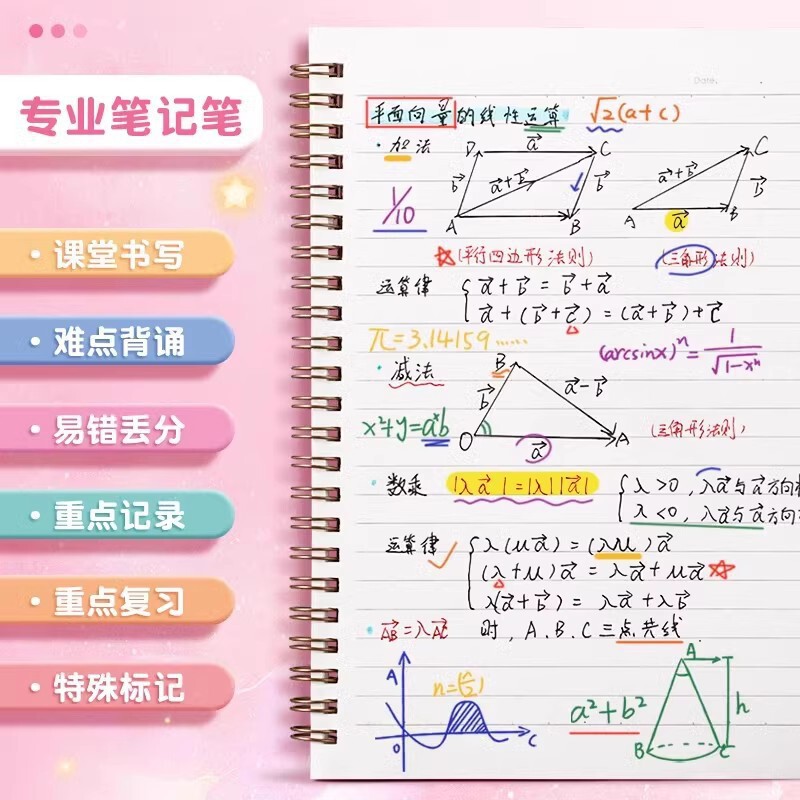 专业笔记笔
· 课堂书写
· 难点背诵
· 易错丢分
· 重点记录
· 重点复习
· 特殊标记
Date.
平面向量的线性运算 √2(a+c)
· 加法
D a⃗ C
b⃗ a⃗+b⃗ b⃗
A B
1/10
C
a⃗+b⃗ b⃗
A a⃗ B
☆(平行四边形法则) (三角形法则)
运算律 { a⃗+b⃗=b⃗+a⃗
a⃗+(b⃗+c⃗)=(a⃗+b⃗)+c⃗
π=3.14159…… (arcsinx)ⁿ=1/√1-xⁿ
· 减法
B
b⃗ a⃗-b⃗
x²+y=aˣb
O a⃗ A (三角形法则)
· 数乘 |λa⃗|=|λ||a⃗| { λ>0,λa⃗与a⃗方向
λ<0,λa⃗与a⃗方向
运算律 { λ(μa⃗)=(λμ)a⃗
(λ+μ)a⃗=λa⃗+μa⃗☆
λ(a⃗+b⃗)=λa⃗+λb⃗
· AB⃗=λAC⃗ 时,A.B.C三点共线.
A
0 C
a²+b²
A
h
B C